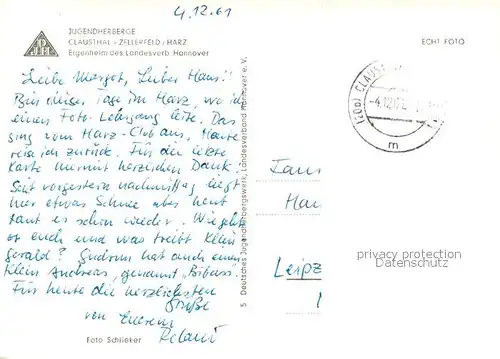 4.12.61
JUGENDHERBERGE
CLAUSTHAL - ZELLERFELD / HARZ
Eigenheim des Landesverb. Hannover
ECHT FOTO
Liebe Margot, Lieber Hans!!
Bin diese Tage im Harz, wo ich
einen Foto-Lehrgang leite. Das
ging vom Harz-Club aus. Heute
reise ich zurück. Für die letzte
Karte hiermit herzlichen Dank!
Seit vorgestern nachmittag liegt
hier etwas Schnee aber heut
taut es schon wieder. Wie geht
es euch und was treibt klein
Gerald? Gudrun hat auch einen
klein Andreas, genannt "Bibass".
Für heute die herzlichsten
Grüße
von Euerem
Foto Schlieker
5 Deutsches Jugendherbergswerk, Landesverband Hannover e. V.
(20b) CLAUST
-4.12.61
m
Fam
Ha
Leipz
privacy protection
Datenschutz